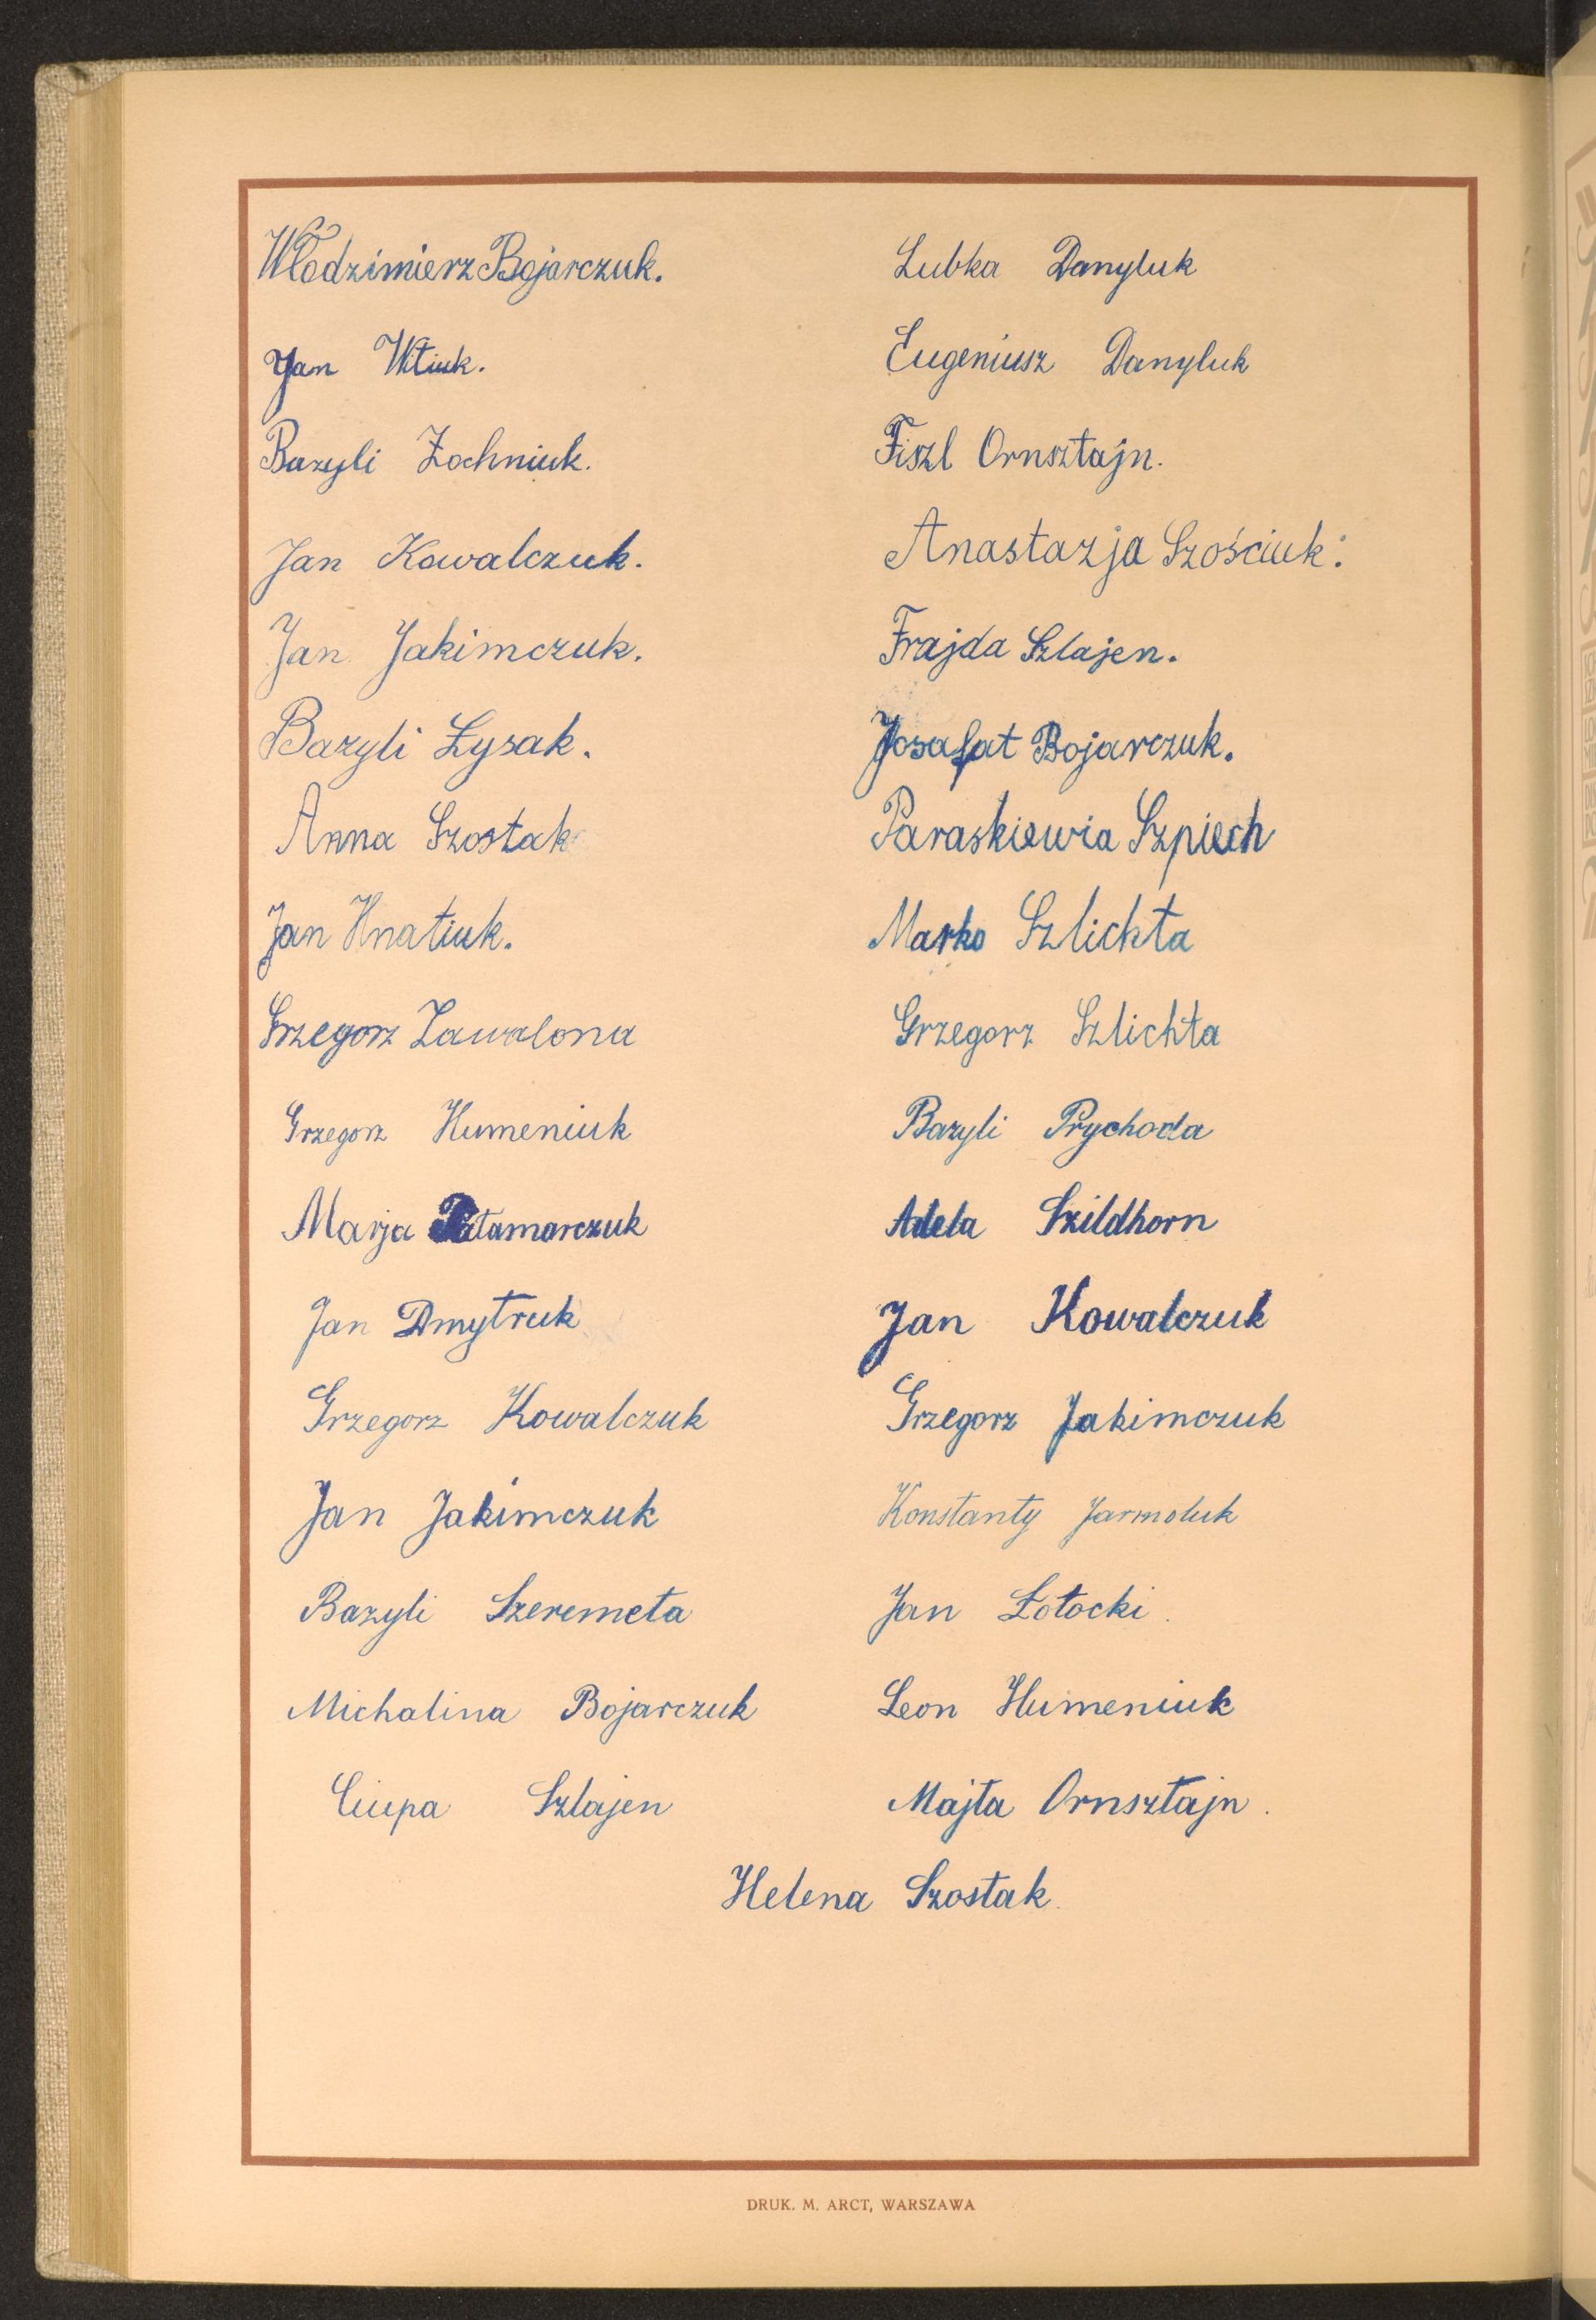 Włodzimierz Bojarczuk.
Jan Witiuk.
Bazyli Żochniuk.
Jan Kowalczuk.
Jan Jakimczuk.
Bazyli Łysak.
Anna Szostak
Jan Hnatiuk.
Grzegorz Zawalona
Grzegorz Humeniuk
Marja Patamarczuk
Jan Dmytruk
Grzegorz Kowalczuk
Jan Jakimczuk
Bazyli Szeremeta
Michalina Bojarczuk
Ciupa Szlajen
Lubka Danyluk
Eugeniusz Danyluk
Fiszl Ornsztajn.
Anastazja Szościuk.
Frajda Szlajen.
Jozafat Bojarczuk.
Paraskiewia Szpiech
Marko Szlichta
Grzegorz Szlichta
Bazyli Prychoda
Adela Szildhorn
Jan Kowalczuk
Grzegorz Jakimczuk
Konstanty Jarmoluk
Jan Łotocki.
Leon Humeniuk
Majta Ornsztajn.
Helena Szostak.
DRUK. M. ARCT, WARSZAWA